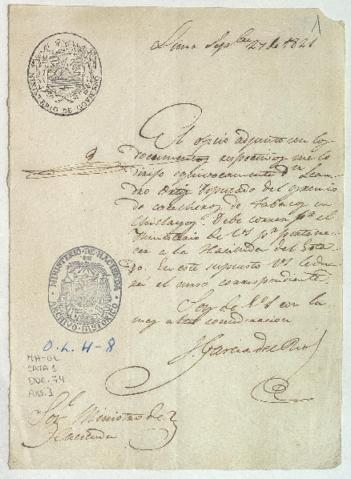 1
Lima Sepbre 27 de 1821
El oficio adjunto con los
documentos respectivos me lo
dirijio equivocamente Dn Lean-
dro Diputado del gremio
de cosecheros de Tabaco en
Chiclayo. Debe correr pr el
Ministerio de VS pr pertene-
cer a la Hacienda del Esta-
do. En este supuesto VS le da-
rá el curso correspondiente.
Soy de VS con la
mas alta consideracion
J. Garcia del Rio
MINISTERIO DE HACIENDA
ARCHIVO HISTORICO
O.L. 4-8
MH-OL
CAJA 1
DOC. 74
Sor Ministro de
Hacienda